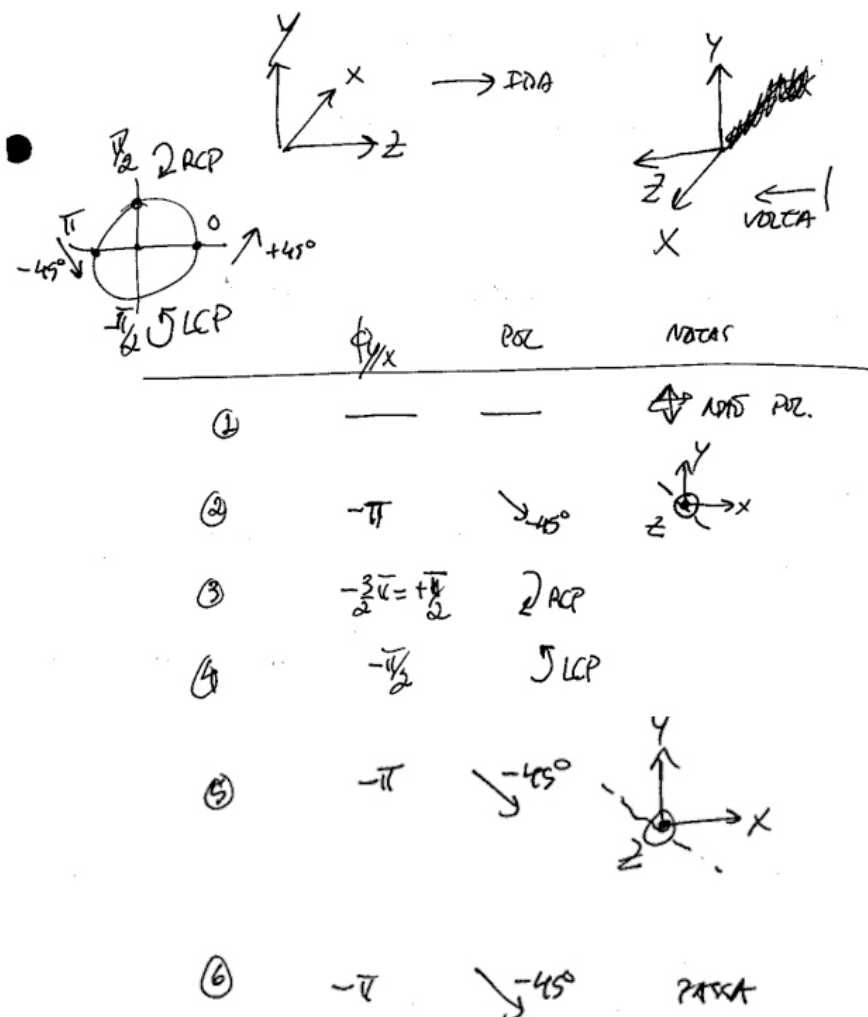 Y
X
Z
→ IDA
Y
Z
X
← VOLTA
π/2 RCP
π
0
-45°
+45°
-π/2 LCP
φy/x POL NOTAS
① — — NÃO POL.
② -π -45° Y X Z
③ -3/2 π = +π/2 RCP
④ -π/2 LCP
⑤ -π -45° Y X Z
⑥ -π -45° PASSA